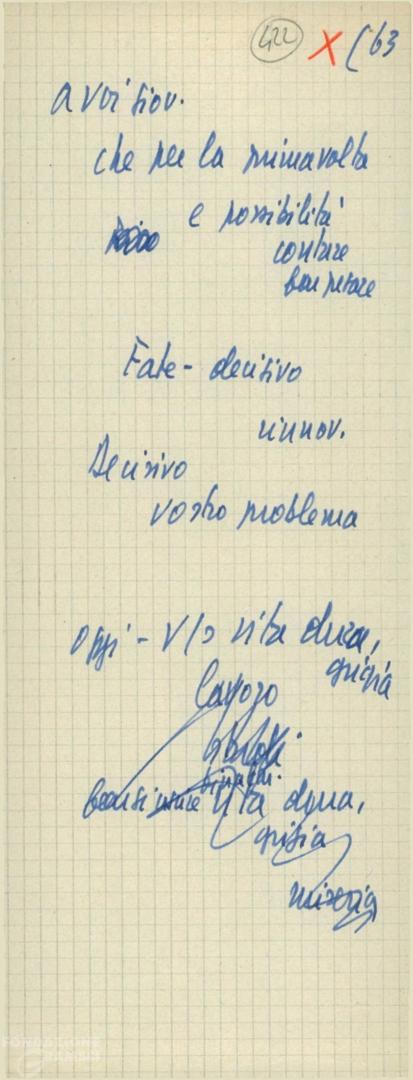 422 X (63
a voi giov.
che per la prima volta
e possibilità
contare
Fate - decisivo
rinnov.
Decisivo
vostro problema
oggi - V/s vita dura,
grigia
lavoro
sindac.
vita dura,
grigia
miseria
FONDAZIONE
GRAMSCI